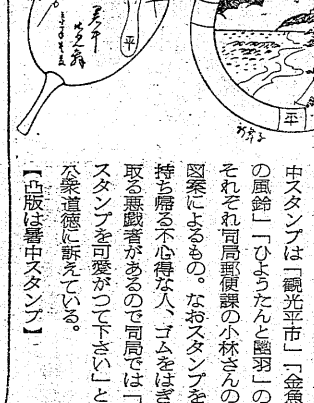 中スタンプは「観光平市」「金魚
の風鈴」「ひようたんと團羽」の
それぞれ同局郵便課の小林さんの
図案によるもの。なおスタンプを
持ち帰る不心得な人、ゴムをはぎ
取る悪戯者があるので同局では「
スタンプを可愛がつて下さい」と
公衆道徳に訴えている。
【凸版は暑中スタンプ】
平
平